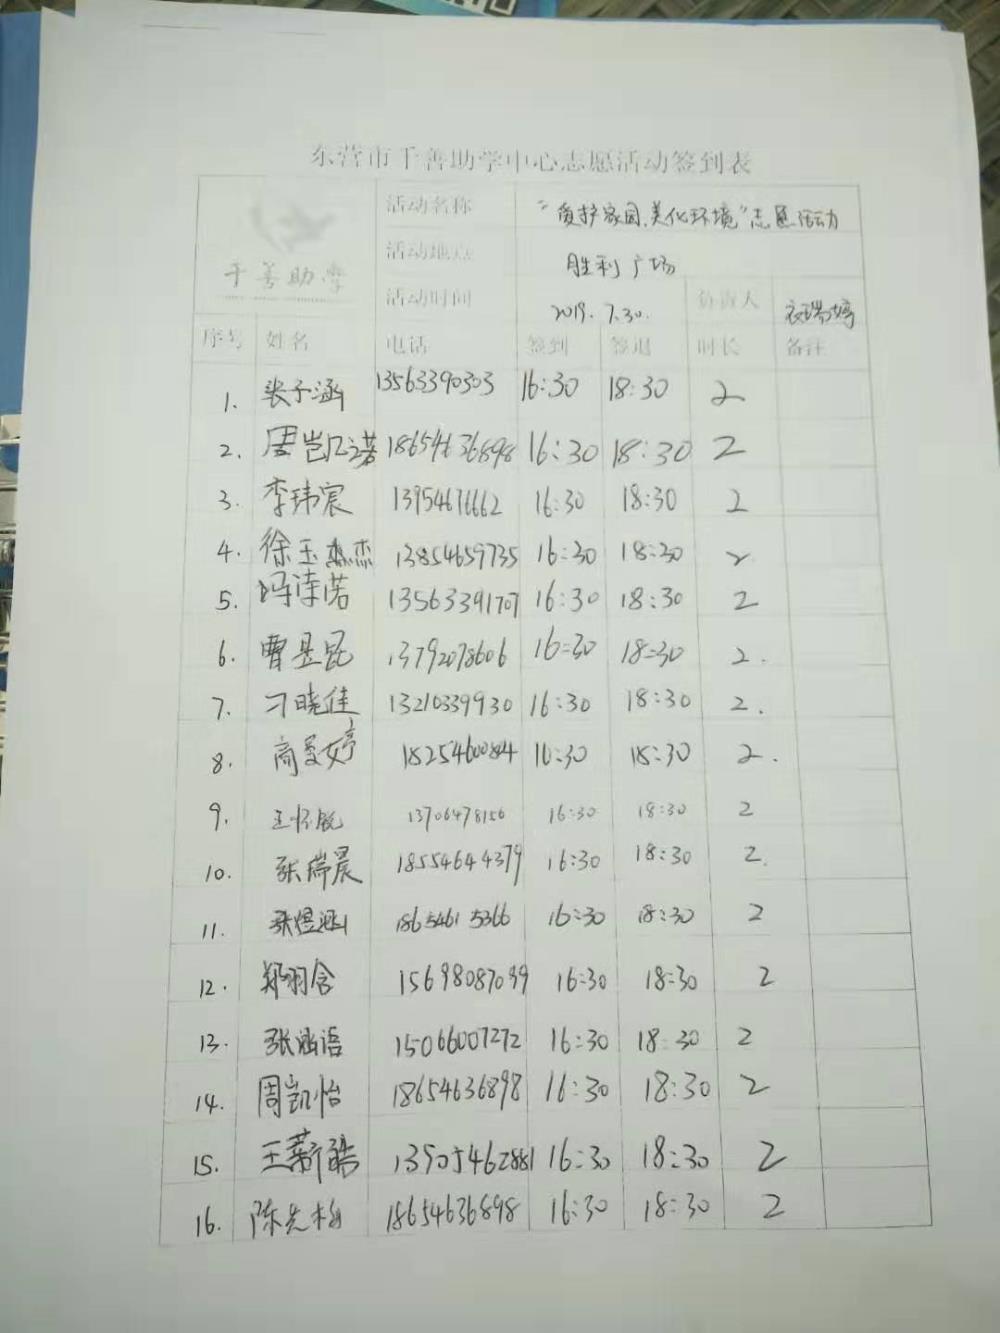 东营市千善助学中心志愿活动签到表
千善助学
活动名称 "爱护家园、美化环境"志愿活动
活动地点 胜利广场
活动时间 2019.7.30. 负责人 衣瑞婷
序号 姓名 电话 签到 签退 时长 备注
1. 张子涵 13563390303 16:30 18:30 2
2. 周岂凡之诺 18654636898 16:30 18:30 2
3. 李玮宸 13954676662 16:30 18:30 2
4. 徐玉杰 13854659735 16:30 18:30 2
5. 冯诗诺 13563391707 16:30 18:30 2
6. 曹昱昆 13792078606 16:30 18:30 2.
7. 刁晓佳 13210339930 16:30 18:30 2.
8. 商婷 18254600884 16:30 18:30 2.
9. 王怀 13706478156 16:30 18:30 2
10. 张瑞晨 18554644379 16:30 18:30 2.
11. 张煜涵 18654615366 16:30 18:30 2
12. 郑羽含 15698087099 16:30 18:30 2
13. 张涵语 15066007272 16:30 18:30 2
14. 周凯怡 18654636898 16:30 18:30 2
15. 王薪皓 13905462881 16:30 18:30 2
16. 陈先梅 18654636898 16:30 18:30 2